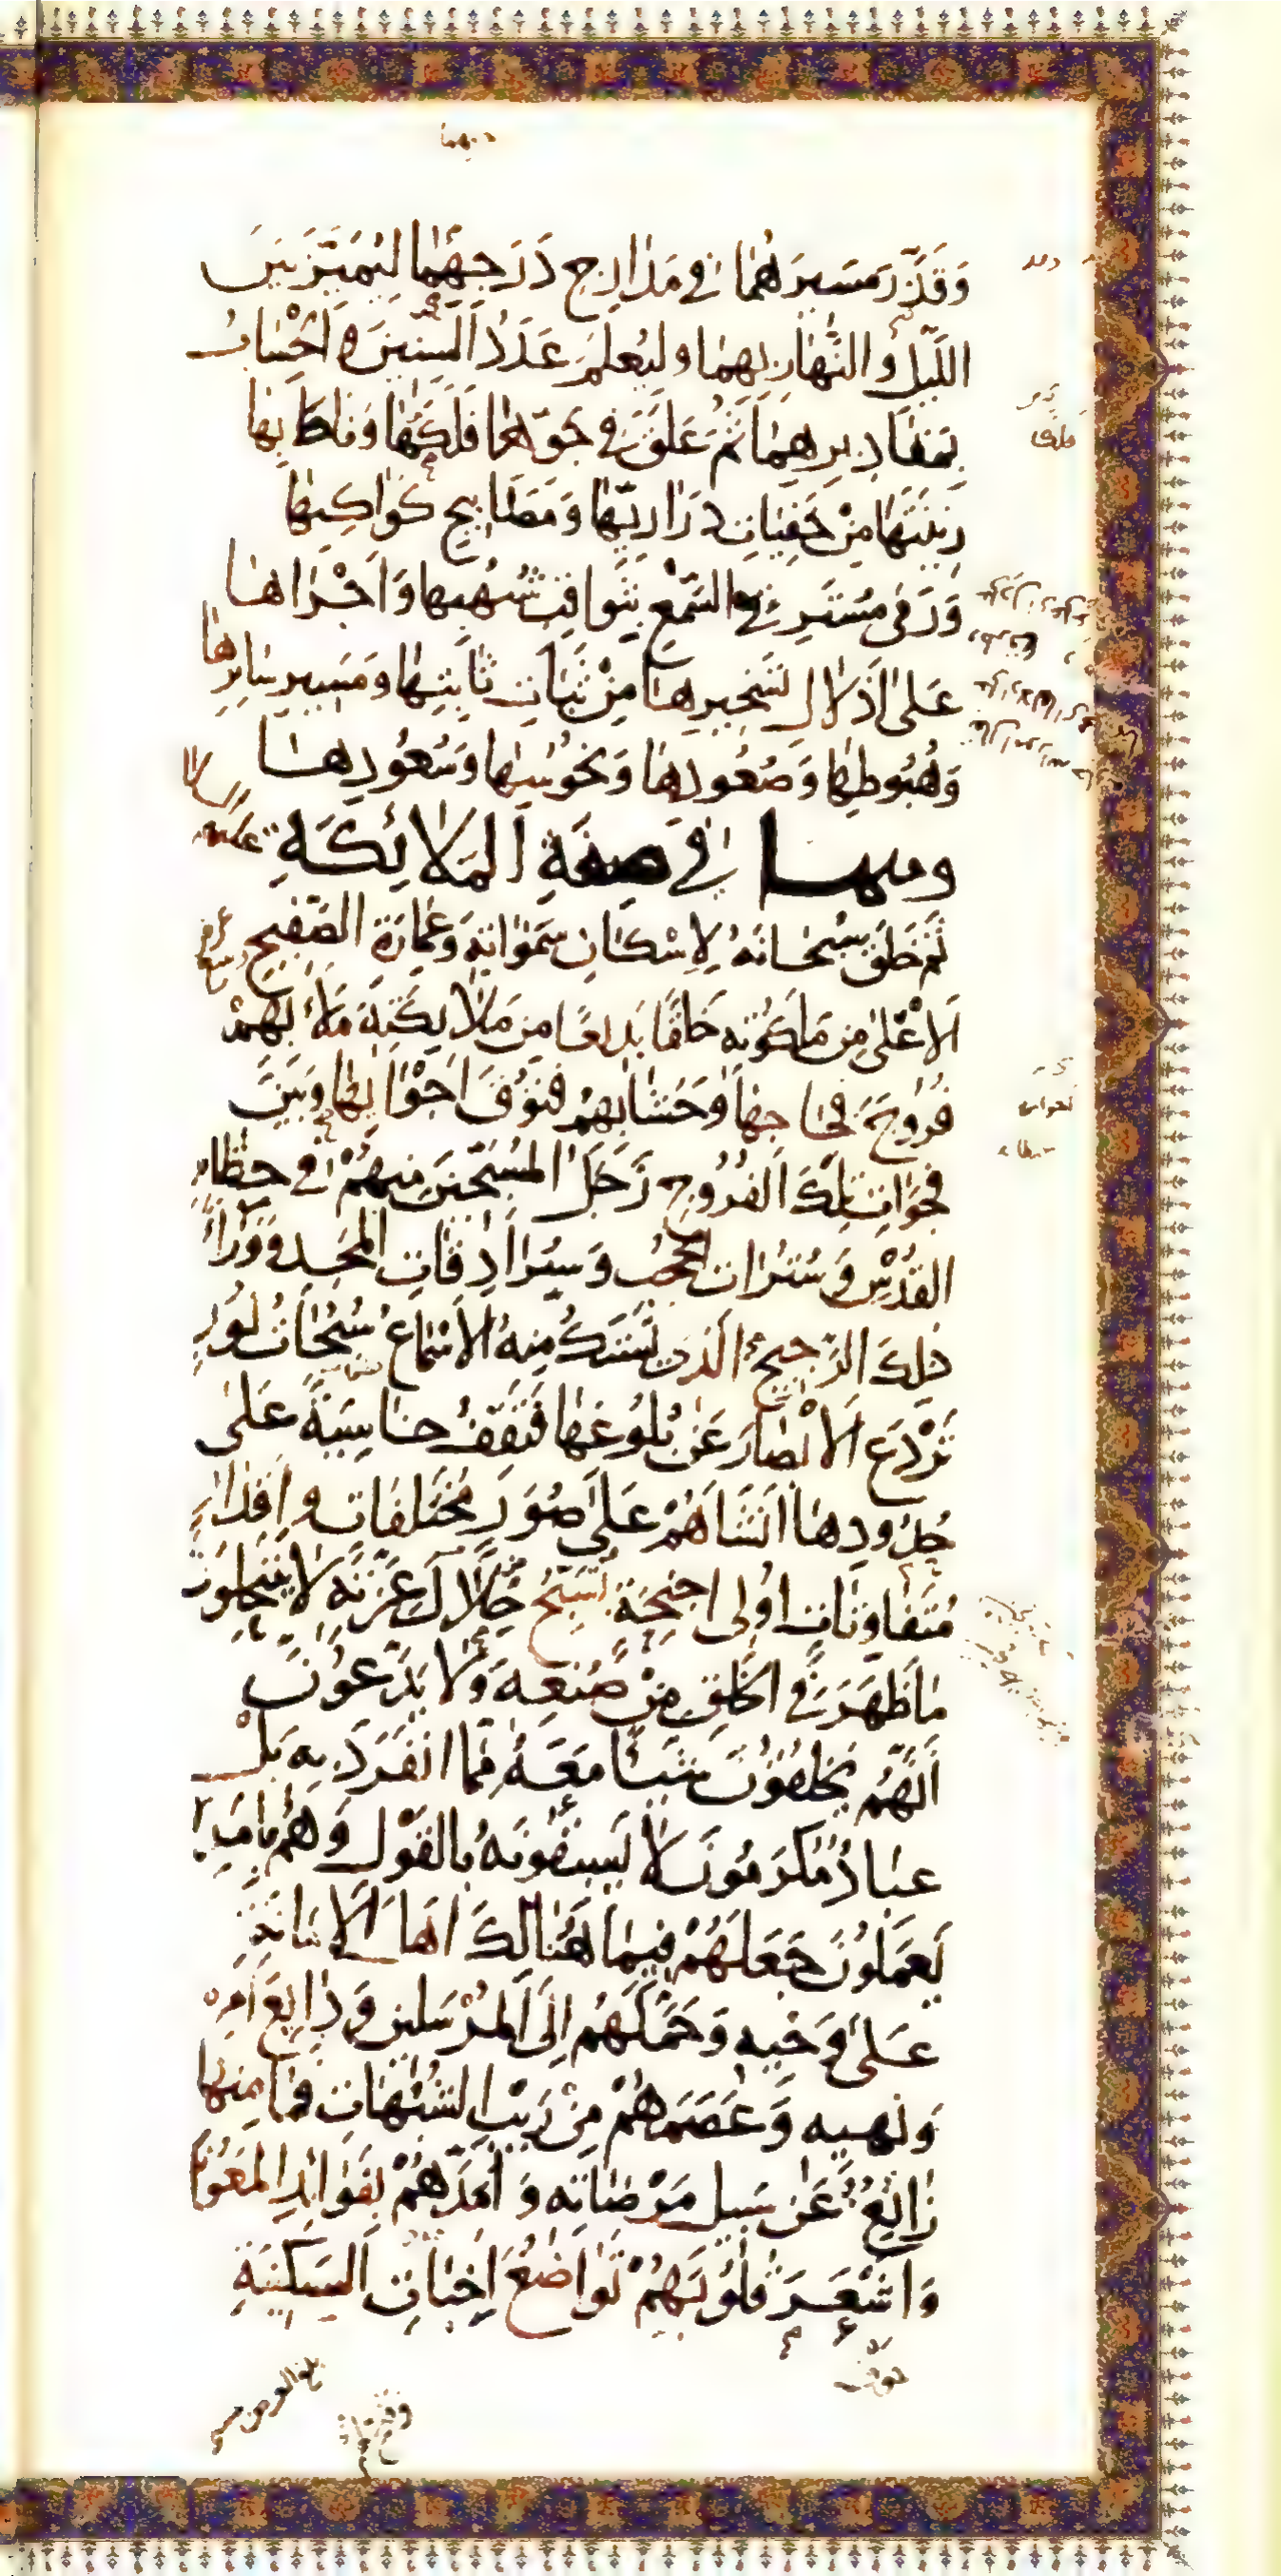 وَقَدَّرَ مَسِيرَهُمَا فِي مَدَارِجِ دَرَجِهِمَا لِيُمَيِّزَ بَيْنَ
اللَّيْلِ وَالنَّهَارِ بِهِمَا وَلِيُعْلَمَ عَدَدُ السِّنِينَ وَالْحِسَابُ
بِمَقَادِيرِهِمَا ثُمَّ عَلَّقَ فِي جَوِّهَا فَلَكَهَا وَنَاطَ بِهَا
زِينَتَهَا مِنْ خَفِيَّاتِ دَرَارِيِّهَا وَمَصَابِيحِ كَوَاكِبِهَا
وَرَمَى مُسْتَرِقِي السَّمْعِ بِثَوَاقِبِ شُهُبِهَا وَأَجْرَاهَا
عَلَى أَذْلَالِ تَسْخِيرِهَا مِنْ ثَبَاتِ ثَابِتِهَا وَمَسِيرِ سَائِرِهَا
وَهُبُوطِهَا وَصُعُودِهَا وَنُحُوسِهَا وَسُعُودِهَا
ومنها فِي صِفَةِ الْمَلَائِكَةِ
ثُمَّ خَلَقَ سُبْحَانَهُ لِإِسْكَانِ سَمَوَاتِهِ وَعِمَارَةِ الصَّفِيحِ
الْأَعْلَى مِنْ مَلَكُوتِهِ خَلْقًا بَدِيعًا مِنْ مَلَائِكَتِهِ مَلَأَ بِهِمْ
فُرُوجَ فِجَاجِهَا وَحَشَا بِهِمْ فُتُوقَ أَجْوَائِهَا وَبَيْنَ
فَجَوَاتِ تِلْكَ الْفُرُوجِ زَجَلُ الْمُسَبِّحِينَ مِنْهُمْ فِي حِظَائِرِ
الْقُدْسِ وَسُتُرَاتِ الْحُجُبِ وَسُرَادِقَاتِ الْمَجْدِ وَوَرَاءَ
ذَلِكَ الرَّجِيجِ الَّذِي تَسْتَكُّ مِنْهُ الْأَسْمَاعُ سُبُحَاتُ نُورٍ
تَرْدَعُ الْأَبْصَارَ عَنْ بُلُوغِهَا فَتَقِفُ خَاسِئَةً عَلَى
حُدُودِهَا أَنْشَأَهُمْ عَلَى صُوَرٍ مُخْتَلِفَاتٍ وَأَقْدَارٍ
مُتَفَاوِتَاتٍ أُولِي أَجْنِحَةٍ تُسَبِّحُ جَلَالَ عِزَّتِهِ لَا يَنْتَحِلُونَ
مَا ظَهَرَ فِي الْخَلْقِ مِنْ صُنْعِهِ وَلَا يَدَّعُونَ
أَنَّهُمْ يَخْلُقُونَ شَيْئًا مَعَهُ مِمَّا انْفَرَدَ بِهِ بَلْ
عِبَادٌ مُكْرَمُونَ لَا يَسْبِقُونَهُ بِالْقَوْلِ وَهُمْ بِأَمْرِهِ
يَعْمَلُونَ جَعَلَهُمْ فِيمَا هُنَالِكَ أَهْلَ الْأَمَانَةِ
عَلَى وَحْيِهِ وَحَمَّلَهُمْ إِلَى الْمُرْسَلِينَ وَدَائِعَ أَمْرِهِ
وَنَهْيِهِ وَعَصَمَهُمْ مِنْ رَيْبِ الشُّبُهَاتِ فَمَا مِنْهُمْ
زَائِغٌ عَنْ سَبِيلِ مَرْضَاتِهِ وَأَمَدَّهُمْ بِفَوَائِدِ الْمَعُونَةِ
وَأَشْعَرَ قُلُوبَهُمْ تَوَاضُعَ إِخْبَاتِ السَّكِينَةِ